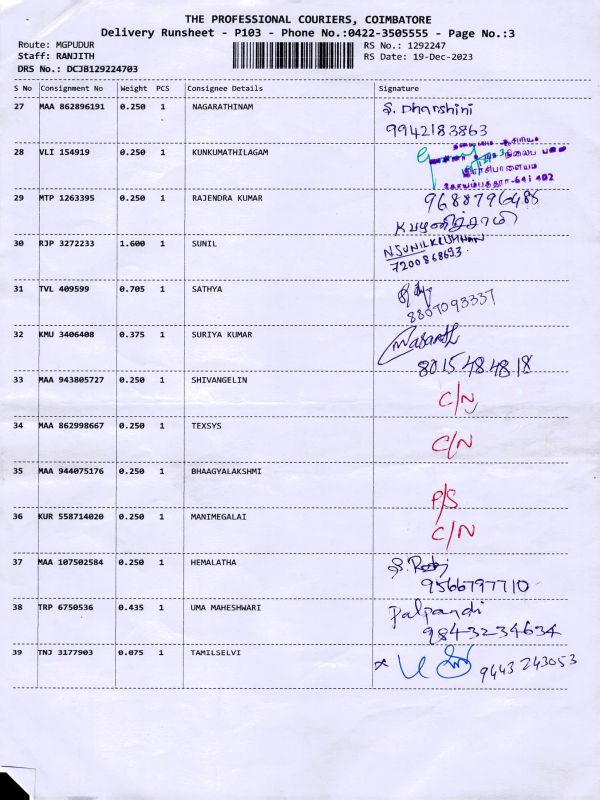 THE PROFESSIONAL COURIERS, COIMBATORE
Delivery Runsheet - P103 - Phone No.:0422-3505555 - Page No.:3
Route: MGPUDUR
RS No.: 1292247
Staff: RANJITH
RS Date: 19-Dec-2023
DRS No.: DCJB129224703
S No Consignment No Weight PCS Consignee Details Signature
27 MAA 862896191 0.250 1 NAGARATHINAM S. Dharshini
9942183863
28 VLI 154919 0.250 1 KUNKUMATHILAGAM
கோயம்புத்தூர்-641 402
29 MTP 1263395 0.250 1 RAJENDRA KUMAR 9688796486
K பழனிச்சாமி
30 RJP 3272233 1.600 1 SUNIL N SUNILKRISHNAN
7200868693
31 TVL 409599 0.705 1 SATHYA
8807093337
32 KMU 3406408 0.375 1 SURIYA KUMAR
8015484818
33 MAA 943805727 0.250 1 SHIVANGELIN C/N
34 MAA 862998667 0.250 1 TEXSYS C/N
35 MAA 944075176 0.250 1 BHAAGYALAKSHMI P/S
36 KUR 558714020 0.250 1 MANIMEGALAI C/N
37 MAA 107502584 0.250 1 HEMALATHA
9566797710
38 TRP 6750536 0.435 1 UMA MAHESHWARI Palpandi
9843234634
39 TNJ 3177903 0.075 1 TAMILSELVI 9443243053